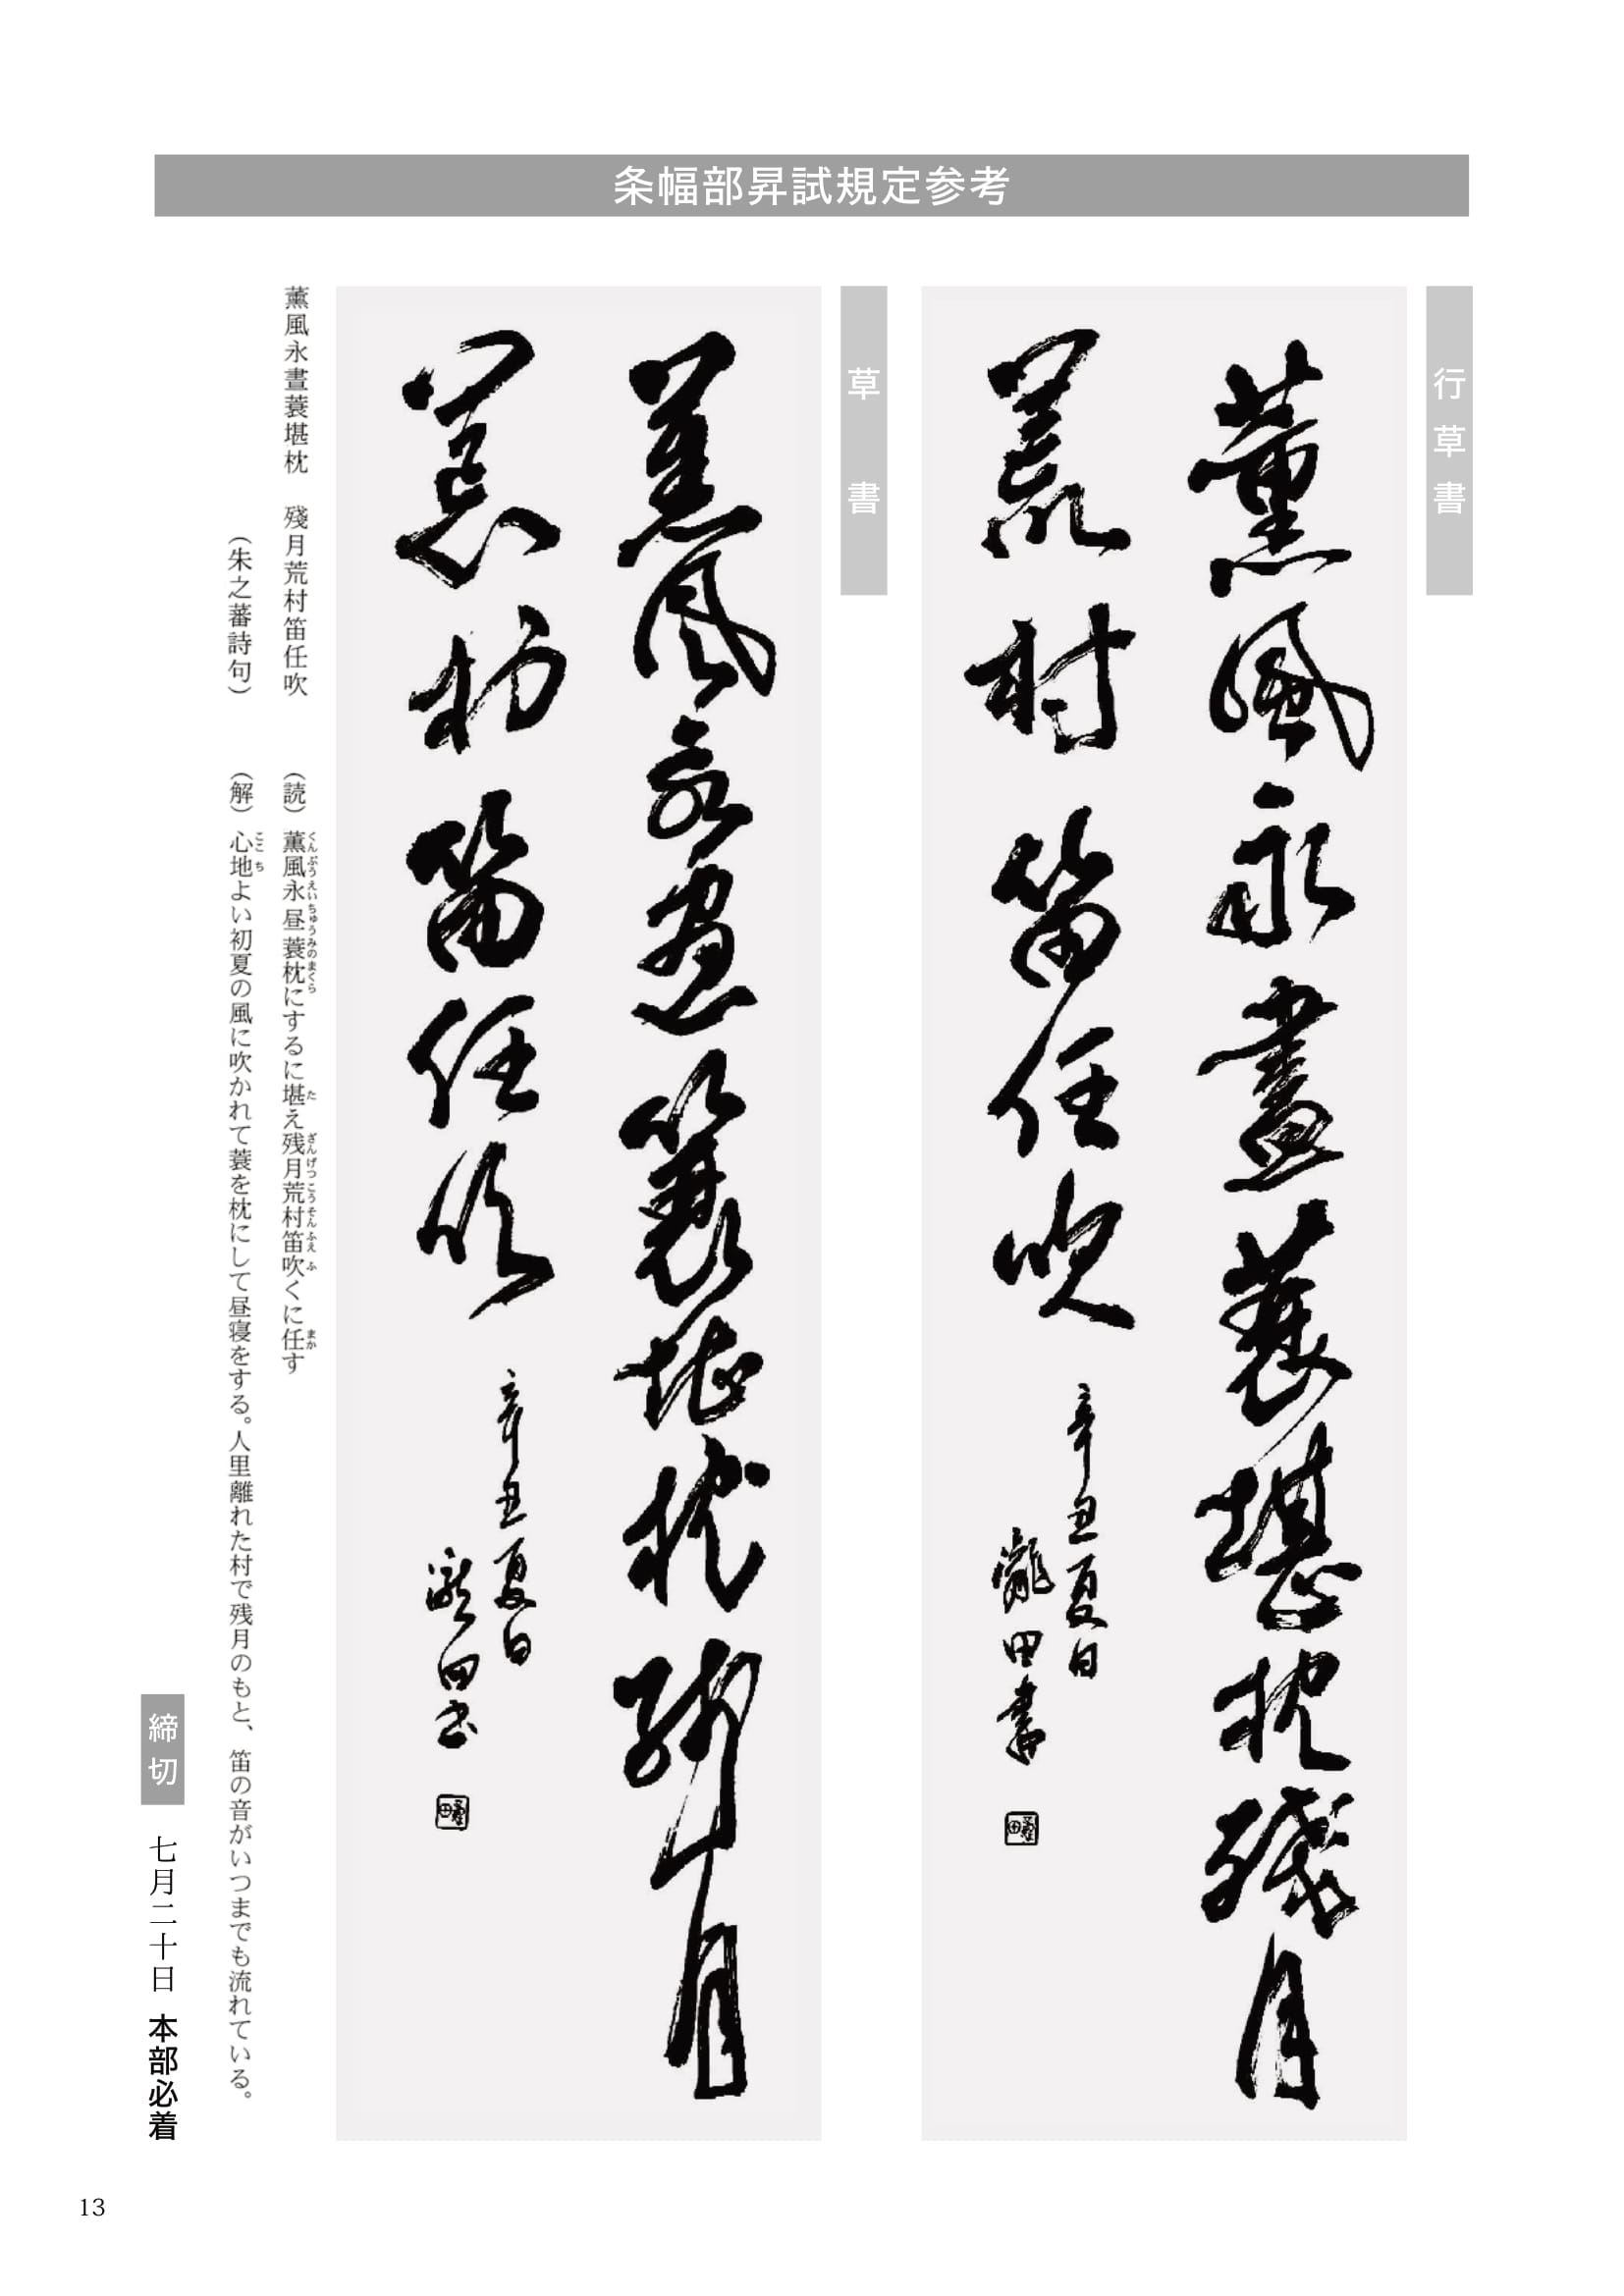 条幅部昇試規定参考
行草書
薫風永晝蓑堪枕殘月
荒村笛任吹
辛丑夏日
瀧田書
草書
薫風永晝蓑堪枕殘月
荒村笛任吹
辛丑夏日
瀧田書
薫風永晝蓑堪枕　殘月荒村笛任吹
（朱之蕃詩句）
（読）薫風永昼蓑枕にするに堪え残月荒村笛吹くに任す
くんぷうえいちゅうみのまくら　た　ざんげつこうそんふえ　ふ　まか
（解）心地よい初夏の風に吹かれて蓑を枕にして昼寝をする。人里離れた村で残月のもと、笛の音がいつまでも流れている。
ここち
締切　七月二十日　本部必着
13